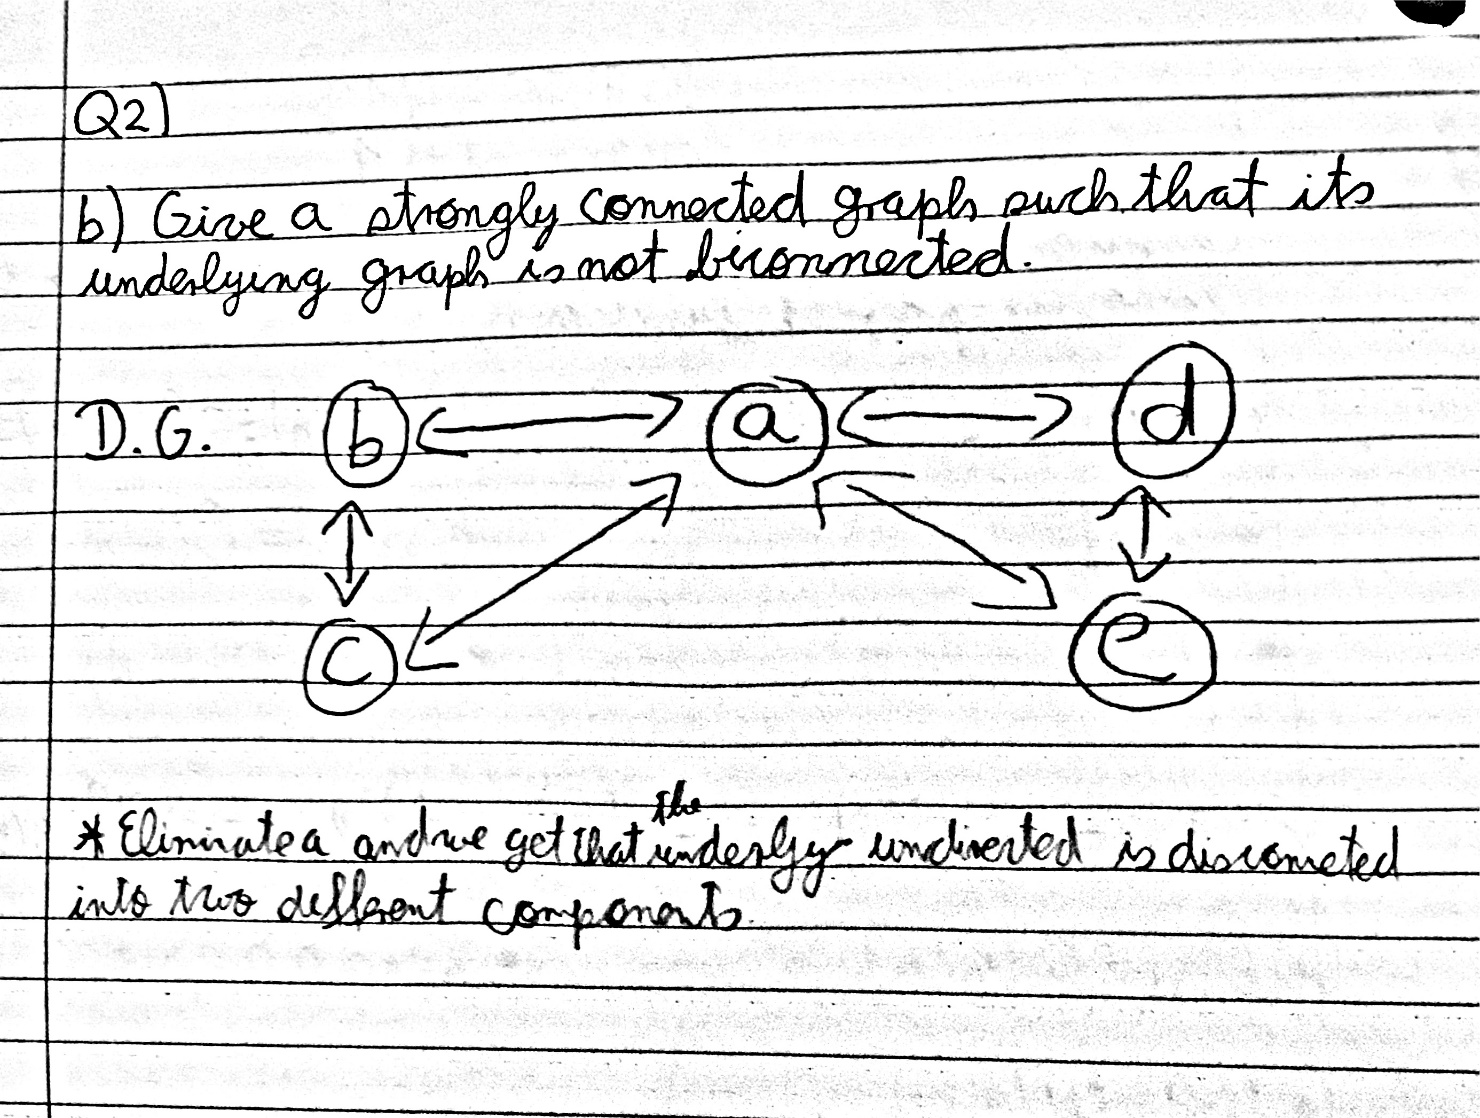 Q2)
b) Give a strongly connected graph such that its
underlying graph is not biconnected.
D.G. b a d
c e
the
* Eliminate a and we get that underlyg undirected is disconneted
into two different components.